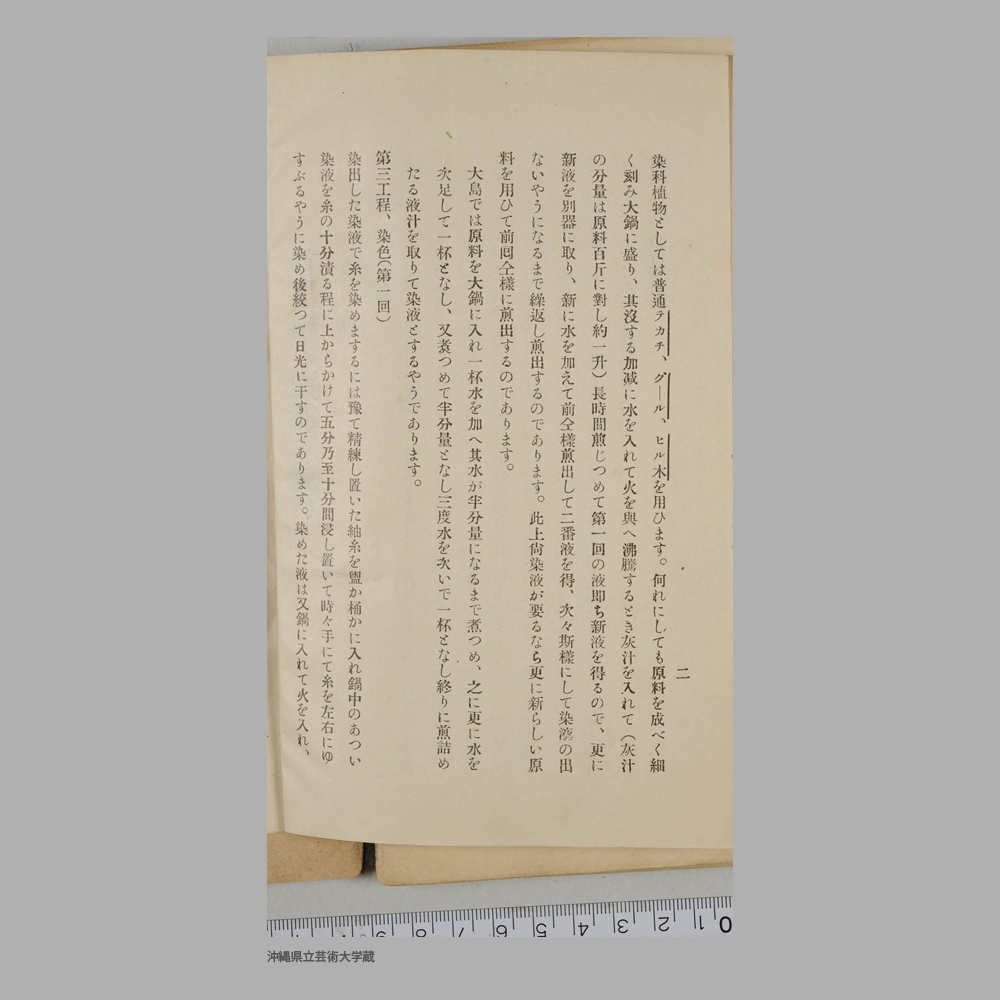 二
染科植物としては普通テカチ、グール、ヒル木を用ひます。何れにしても原料を成べく細
く刻み大鍋に盛り、其沒する加減に水を入れて火を與へ沸騰するとき灰汁を入れて（灰汁
の分量は原料百斤に對し約一升）長時間煎じつめて第一回の液卽ち新液を得るので、更に
新液を別器に取り、新に水を加えて前仝樣煎出して二番液を得、次々斯樣にして染液の出
ないやうになるまで繰返し煎出するのであります。此上尙染液が要るなら更に新らしい原
料を用ひて前囘仝樣に煎出するのであります。
大島では原料を大鍋に入れ一杯水を加へ其水が半分量になるまで煮つめ、之に更に水を
次足して一杯となし、又煮つめて半分量となし三度水を次いで一杯となし終りに煎詰め
たる液汁を取りて染液とするやうであります。
第三工程、染色（第一回）
染出した染液で糸を染めまするには豫て精練し置いた紬糸を盥か桶かに入れ鍋中のあつい
染液を糸の十分漬る程に上からかけて五分乃至十分間浸し置いて時々手にて糸を左右にゆ
すぶるやうに染め後絞つて日光に干すのであります。染めた液は又鍋に入れて火を入れ、
0 1 2 3 4 5 6 7 8 9
沖縄県立芸術大学蔵